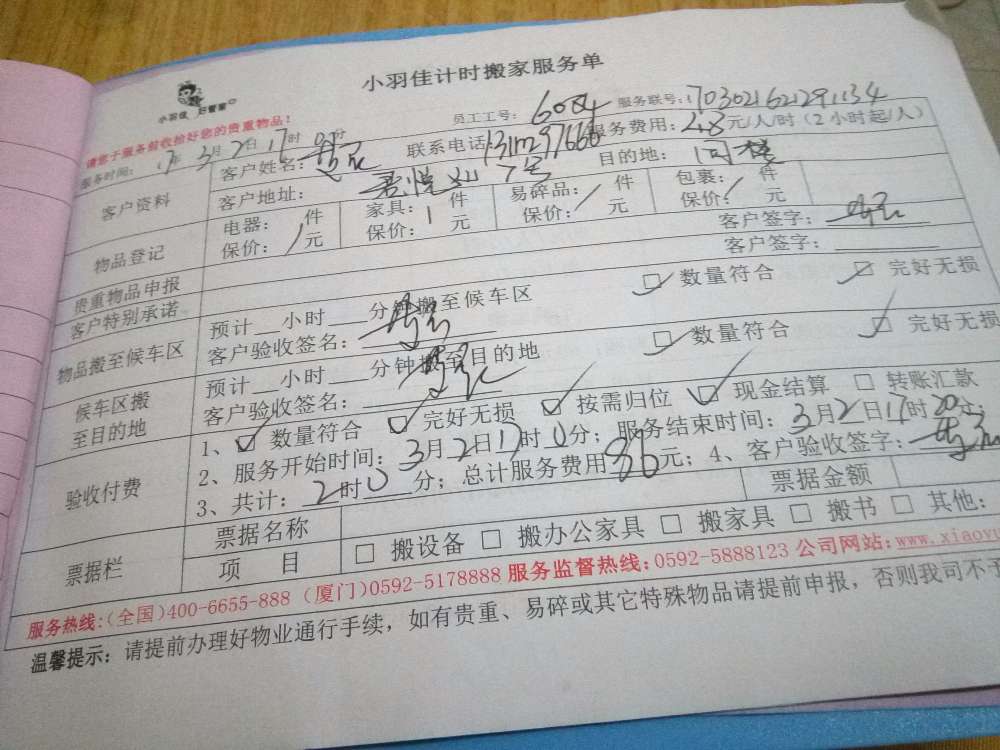 小羽佳计时搬家服务单
小羽佳 好管家
请您于服务前收拾好您的贵重物品！
员工工号： 服务联号：1703021621291134
服务时间： 17年 3月2日17时 分
客户资料
客户姓名： 联系电话： 服务费用： 元/人/时（2小时起/人）
客户地址： 目的地： 同楼
物品登记
电器： 件 家具：1 件 易碎品： 件 包裹： 件
保价：/ 元 保价： 元 保价：/ 元 保价：/ 元
贵重物品申报 客户签字：
客户特别承诺 客户签字：
物品搬至候车区
预计 小时 分钟搬至候车区 数量符合 完好无损
客户验收签名：
候车区搬至目的地
预计 小时 分钟搬至目的地 数量符合 完好无损
客户验收签名：
验收付费
1、 数量符合 完好无损 按需归位 现金结算 转账汇款
2、服务开始时间：3月2日17时0分；服务结束时间：3月2日17时20分
3、共计：2时0分；总计服务费用 元；4、客户验收签字：
票据栏
票据名称 票据金额
项 目 搬设备 搬办公家具 搬家具 搬书 其他：
服务热线:(全国)400-6655-888 (厦门)0592-5178888 服务监督热线:0592-5888123 公司网站:www.xiaoyu
温馨提示：请提前办理好物业通行手续，如有贵重、易碎或其它特殊物品请提前申报，否则我司不予